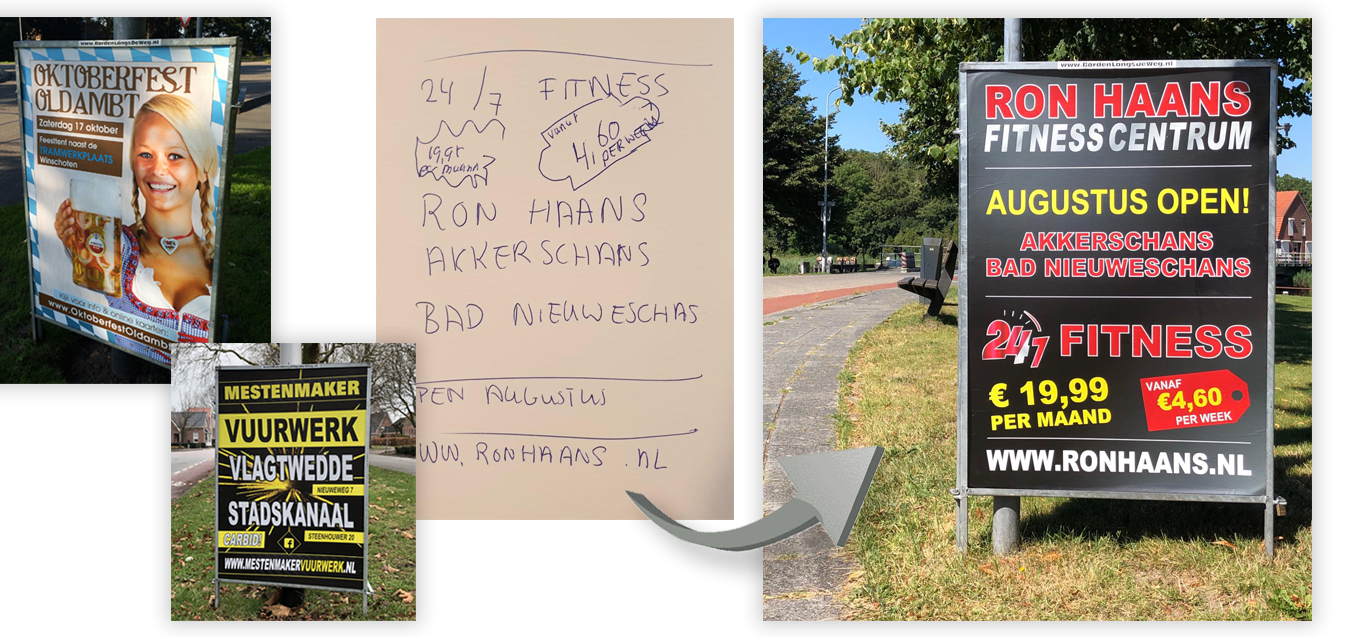 www.BordenLangsDeWeg.nl
OKTOBERFEST
OLDAMBT
Zaterdag 17 oktober
Feesttent naast de
TRAMWERKPLAATS
Winschoten
Klik voor info & online kaarten:
www.OktoberfestOldamb
MESTENMAKER
VUURWERK
VLAGTWEDDE
NIEUWEWEG 7
STADSKANAAL
CARBID!
STEENHOUWER 20
WWW.MESTENMAKERVUURWERK.NL
24/7 FITNESS
19,95
per maand
vanuf
4,60
PER WEEK
RON HAANS
AKKERSCHANS
BAD NIEUWESCHAS
PEN AUGUSTUS
WW.RONHAANS.NL
www.BordenLangsDeWeg.nl
RON HAANS
FITNESSCENTRUM
AUGUSTUS OPEN!
AKKERSCHANS
BAD NIEUWESCHANS
24/7 FITNESS
€ 19,99
PER MAAND
VANAF
€4,60
PER WEEK
WWW.RONHAANS.NL